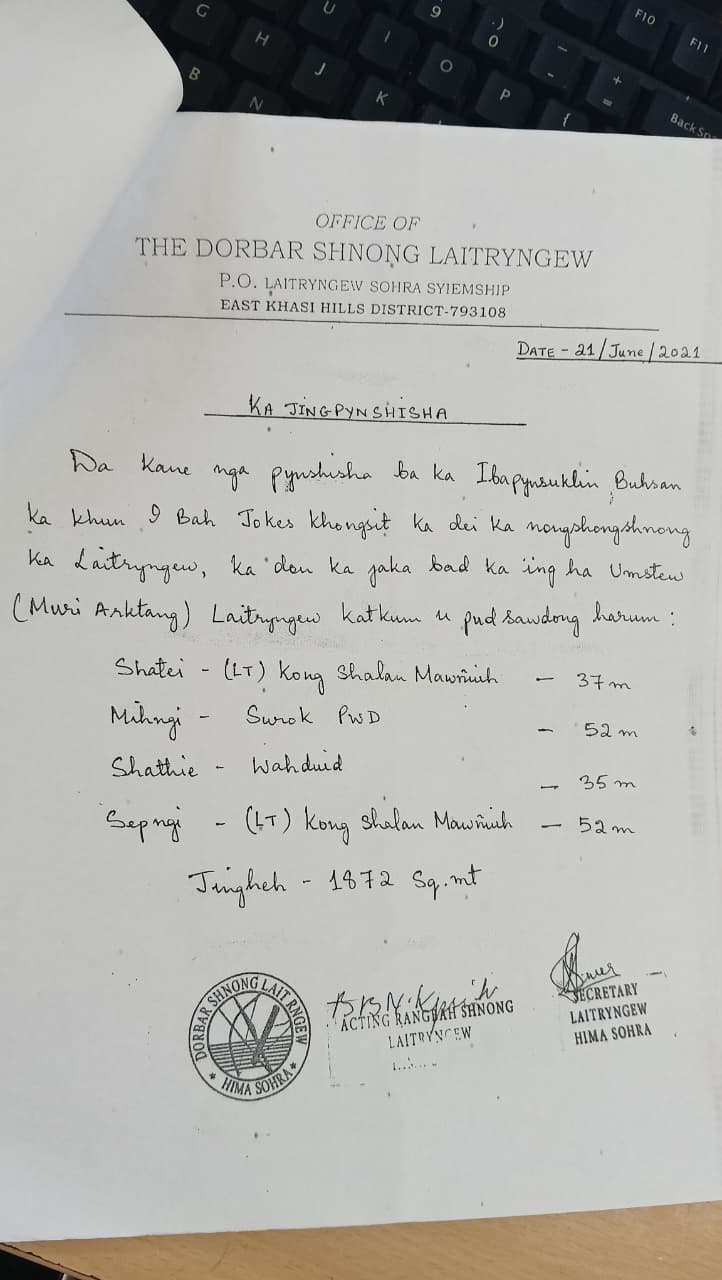 G
U
9
.)
0
F10
F11
H
I
O
-
+
=
B
J
P
{
Back Sp
N
K
OFFICE OF
THE DORBAR SHNONG LAITRYNGEW
P.O. LAITRYNGEW SOHRA SYIEMSHIP
EAST KHASI HILLS DISTRICT-793108
DATE - 21/June/2021
KA JINGPYNSHISHA
Da kane nga pynshisha ba ka Ibapynsuklin Buhsan
ka khun I Bah Jokes Khongsit ka dei ka nongshongshnong
ka Laitryngew, ka don ka jaka bad ka ing ha Umstew
(Muri Arktang) Laitryngew katkum u pud sawdong harum :
Shatei - (LT) Kong Shalan Mawñiuh - 37m
Mihngi - Surok PWD - 52m
Shathie - Wahduid - 35m
Sepngi - (LT) Kong Shalan Mawñiuh - 52m
Jingheh - 1872 Sq.mt
DORBAR SHNONG LAIT RNGEW
HIMA SOHRA
ACTING RANGBAH SHNONG
LAITRYNGEW
SECRETARY
LAITRYNGEW
HIMA SOHRA